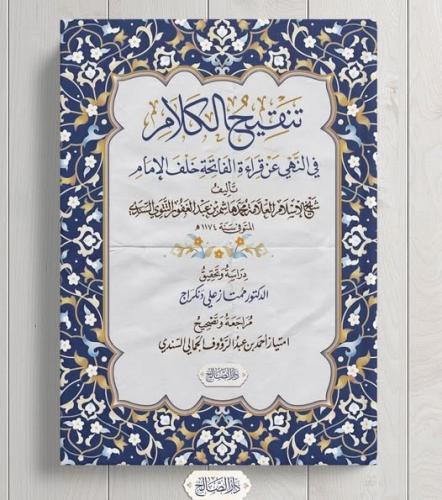 تنقيح الكلام
في النهي عن قراءة الفاتحة خلف الإمام
تأليف
شيخ الإسلام العلامة محمد هاشم بن عبد الغفور التتوي السندي
المتوفى سنة ١١٧٤هـ
دراسة وتحقيق
الدكتور ممتاز علي دنكراج
مراجعة وتصحيح
امتياز أحمد بن عبد الرؤوف الجمالي السندي
دار الصالح
دار الصالح